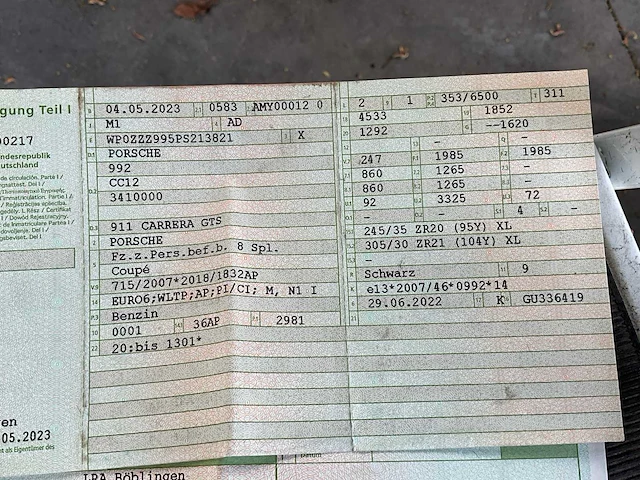 gung Teil I
00217
ndesrepublik
utschland
04.05.2023 0583 AMY00012 0
M1 AD
WP0ZZZ995PS213821 X
PORSCHE
992
CC12
3410000
911 CARRERA GTS
PORSCHE
Fz.z.Pers.bef.b. 8 Spl.
Coupé
715/2007*2018/1832AP
EURO6;WLTP;AP;PI/CI; M, N1 I
Benzin
0001 36AP 2981
20:bis 1301*
2 1 353/6500 311
4533 1852
1292 --1620
- -
247 1985 1985
860 1265 -
860 1265 -
92 3325 72
- - 4 -
245/35 ZR20 (95Y) XL
305/30 ZR21 (104Y) XL
-
Schwarz 9
e13*2007/46*0992*14
29.06.2022 K GU336419
en
05.2023
LRA Böblingen